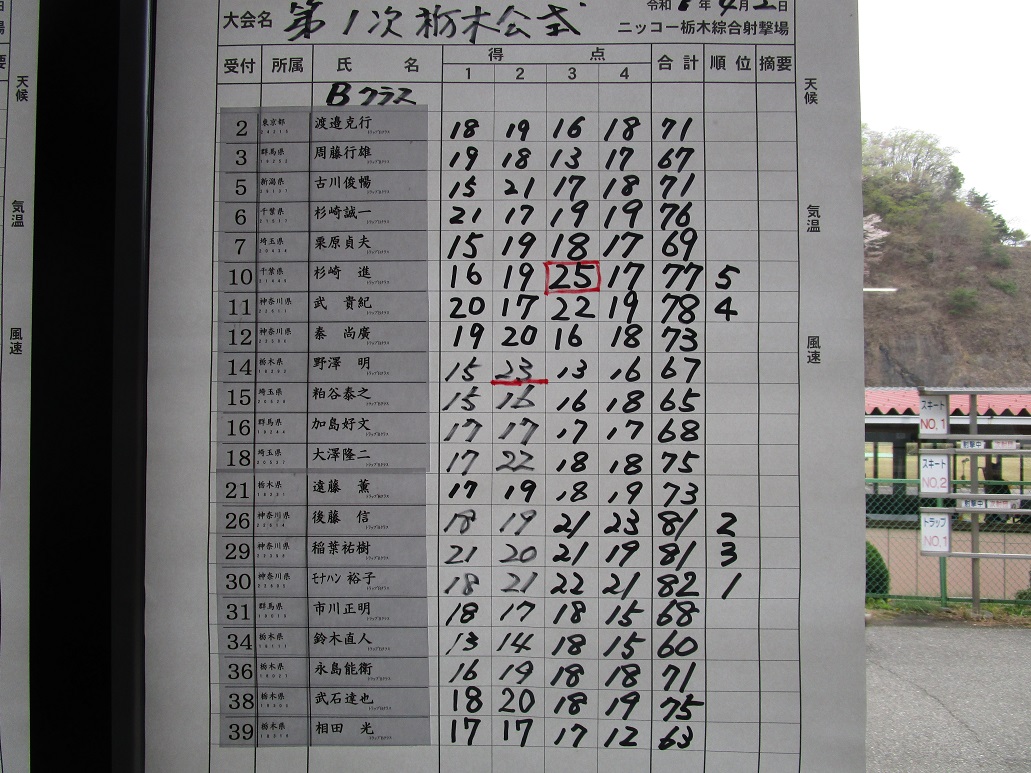 大会名 第1次栃木公式
令和6年4月2日
ニッコー栃木綜合射撃場
受付 所属 氏名 得点 合計 順位 摘要
1 2 3 4
Bクラス
2 東京都 渡邉克行 18 19 16 18 71
3 群馬県 周藤行雄 19 18 13 17 67
5 新潟県 古川俊暢 15 21 17 18 71
6 千葉県 杉崎誠一 21 17 19 19 76
7 埼玉県 栗原貞夫 15 19 18 17 69
10 千葉県 杉崎 進 16 19 25 17 77 5
11 神奈川県 武 貴紀 20 17 22 19 78 4
12 神奈川県 秦 尚廣 19 20 16 18 73
14 栃木県 野澤 明 15 23 13 16 67
15 埼玉県 粕谷泰之 15 16 16 18 65
16 群馬県 加島好文 17 17 17 17 68
18 埼玉県 大澤隆二 17 22 18 18 75
21 栃木県 遠藤 薫 17 19 18 19 73
26 神奈川県 後藤 信 18 19 21 23 81 2
29 神奈川県 稲葉祐樹 21 20 21 19 81 3
30 神奈川県 モナハン 裕子 18 21 22 21 82 1
31 群馬県 市川正明 18 17 18 15 68
34 栃木県 鈴木直人 13 14 18 15 60
36 栃木県 永島能衛 16 19 18 18 71
38 栃木県 武石達也 18 20 18 19 75
39 栃木県 相田 光 17 17 17 12 63
天候
気温
風速
天候
気温
風速
スキート
NO,1
スキート
NO,2
トラップ
NO,1